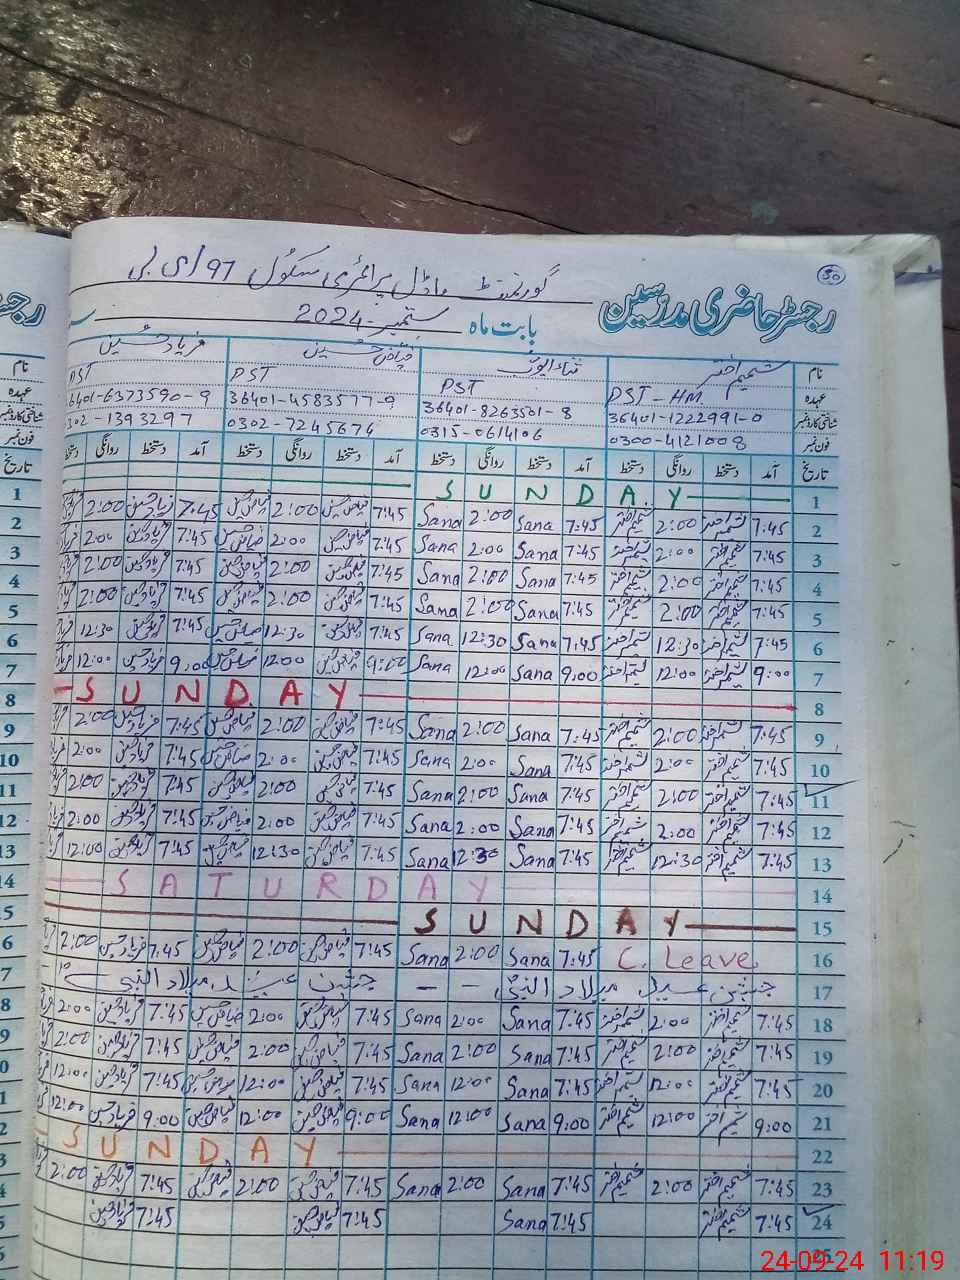 50
گورنمنٹ ماڈل پرائمری سکول 97/ای بی
رجسٹر حاضری مدرسین
بابت ماہ ستمبر 2024
نام شمیم اختر ثناء ایوب فیاض حسین فریاد حسین
عہدہ PST-HM PST PST PST
شناختی کارڈ نمبر 36401-1222991-0 36401-8263501-8 36401-4583577-9 36401-6373590-9
فون نمبر 0300-4121008 0315-0614106 0302-7245674 302-1393297
تاریخ آمد دستخط روانگی دستخط آمد دستخط روانگی دستخط آمد دستخط روانگی دستخط آمد دستخط روانگی دستخط
1 SUNDAY
2 7:45 شمیم اختر 2:00 شمیم اختر 7:45 Sana 2:00 Sana 7:45 فیاض حسین 2:00 فیاض حسین 7:45 فریاد حسین 2:00
3 7:45 شمیم اختر 2:00 شمیم اختر 7:45 Sana 2:00 Sana 7:45 فیاض حسین 2:00 فیاض حسین 7:45 فریاد حسین 2:00
4 7:45 شمیم اختر 2:00 شمیم اختر 7:45 Sana 2:00 Sana 7:45 فیاض حسین 2:00 فیاض حسین 7:45 فریاد حسین 2:00
5 7:45 شمیم اختر 2:00 شمیم اختر 7:45 Sana 2:00 Sana 7:45 فیاض حسین 2:00 فیاض حسین 7:45 فریاد حسین 2:00
6 7:45 شمیم اختر 12:30 شمیم اختر 7:45 Sana 12:30 Sana 7:45 فیاض حسین 12:30 فیاض حسین 7:45 فریاد حسین 12:30
7 9:00 شمیم اختر 12:00 شمیم اختر 9:00 Sana 12:00 Sana 9:00 فیاض حسین 12:00 فیاض حسین 9:00 فریاد حسین 12:00
8 SUNDAY
9 7:45 شمیم اختر 2:00 شمیم اختر 7:45 Sana 2:00 Sana 7:45 فیاض حسین 2:00 فیاض حسین 7:45 فریاد حسین 2:00
10 7:45 شمیم اختر 2:00 شمیم اختر 7:45 Sana 2:00 Sana 7:45 فیاض حسین 2:00 فیاض حسین 7:45 فریاد حسین 2:00
11 7:45 شمیم اختر 2:00 شمیم اختر 7:45 Sana 2:00 Sana 7:45 فیاض حسین 2:00 فیاض حسین 7:45 فریاد حسین 2:00
12 7:45 شمیم اختر 2:00 شمیم اختر 7:45 Sana 2:00 Sana 7:45 فیاض حسین 2:00 فیاض حسین 7:45 فریاد حسین 2:00
13 7:45 شمیم اختر 12:30 شمیم اختر 7:45 Sana 12:30 Sana 7:45 فیاض حسین 12:30 فیاض حسین 7:45 فریاد حسین 12:00
14 SATURDAY
15 SUNDAY
16 C. Leave 7:45 Sana 2:00 Sana 7:45 فیاض حسین 2:00 فیاض حسین 7:45 فریاد حسین 2:00
17 جشن عید میلاد النبیؐ - - جشن عید میلاد النبیؐ
18 7:45 شمیم اختر 2:00 شمیم اختر 7:45 Sana 2:00 Sana 7:45 فیاض حسین 2:00 فیاض حسین 7:45 فریاد حسین 2:00
19 7:45 شمیم اختر 2:00 شمیم اختر 7:45 Sana 2:00 Sana 7:45 فیاض حسین 2:00 فیاض حسین 7:45 فریاد حسین 2:00
20 7:45 شمیم اختر 12:00 شمیم اختر 7:45 Sana 12:00 Sana 7:45 فیاض حسین 12:00 فیاض حسین 7:45 فریاد حسین 12:00
21 9:00 شمیم اختر 12:00 شمیم اختر 9:00 Sana 12:00 Sana 9:00 فیاض حسین 12:00 فیاض حسین 9:00 فریاد حسین 12:00
22 SUNDAY
23 7:45 شمیم اختر 2:00 شمیم اختر 7:45 Sana 2:00 Sana 7:45 فیاض حسین 2:00 فیاض حسین 7:45 فریاد حسین 2:00
24 7:45 شمیم اختر 7:45 Sana 7:45 فیاض حسین 7:45 فریاد حسین
25
24-09-24 11:19